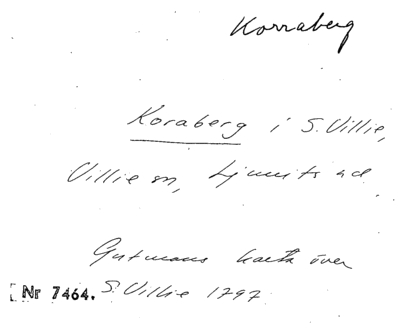 Korraberg
Koraberg i S. Villie,
Villie sn, Ljunits hd.
Gutmans karta över
[Nr 7464. S. Villie 1797